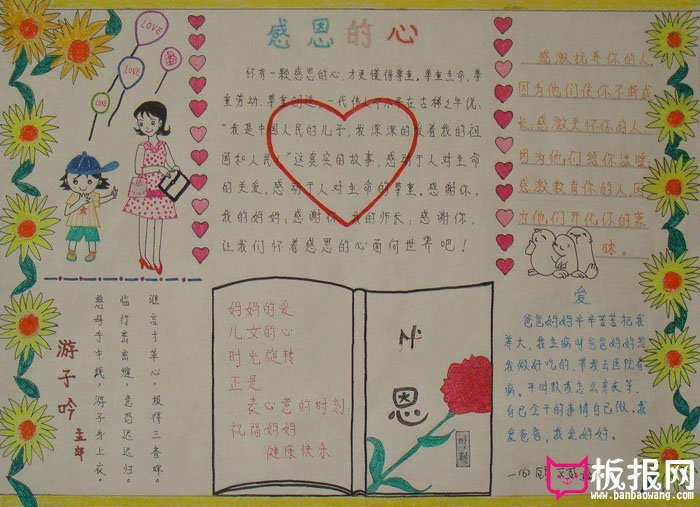 感恩的心
LOVE
LOVE
LOVE
怀有一颗感恩的心,才更懂得尊重。尊重生命,尊
重劳动、尊重创造。一代伟人邓小平在古稀之年说:
“我是中国人民的儿子,我深深的爱着我的祖
国和人民。”这真实的故事,感动于人对生命
的关爱,感动于人对生命的尊重。感谢你,
我的妈妈,感谢你,我的师长,感谢你,
让我们怀着感恩的心面向世界吧!
感激抚养你的人,
因为他们使你不断成
长,感激关怀你的人,
因为他们给你温暖,
感激教育你的人,因
为他们开化你的蒙
昧。
游子吟
孟郊
慈母手中线,游子身上衣。
临行密密缝,意恐迟迟归。
谁言寸草心,报得三春晖。
妈妈的爱
儿女的心
时光旋转
正是
表心意的时刻
祝福妈妈
健康快乐
恩
时刻
爱
爸爸妈妈辛辛苦苦把我
养大,我生病时爸爸妈妈给
我做好吃的,带我去医院看
病。平时教我怎么亲友等,
自己会干的事情自己做,我
爱爸爸,我爱妈妈。
板报网
www.banbaowang.com